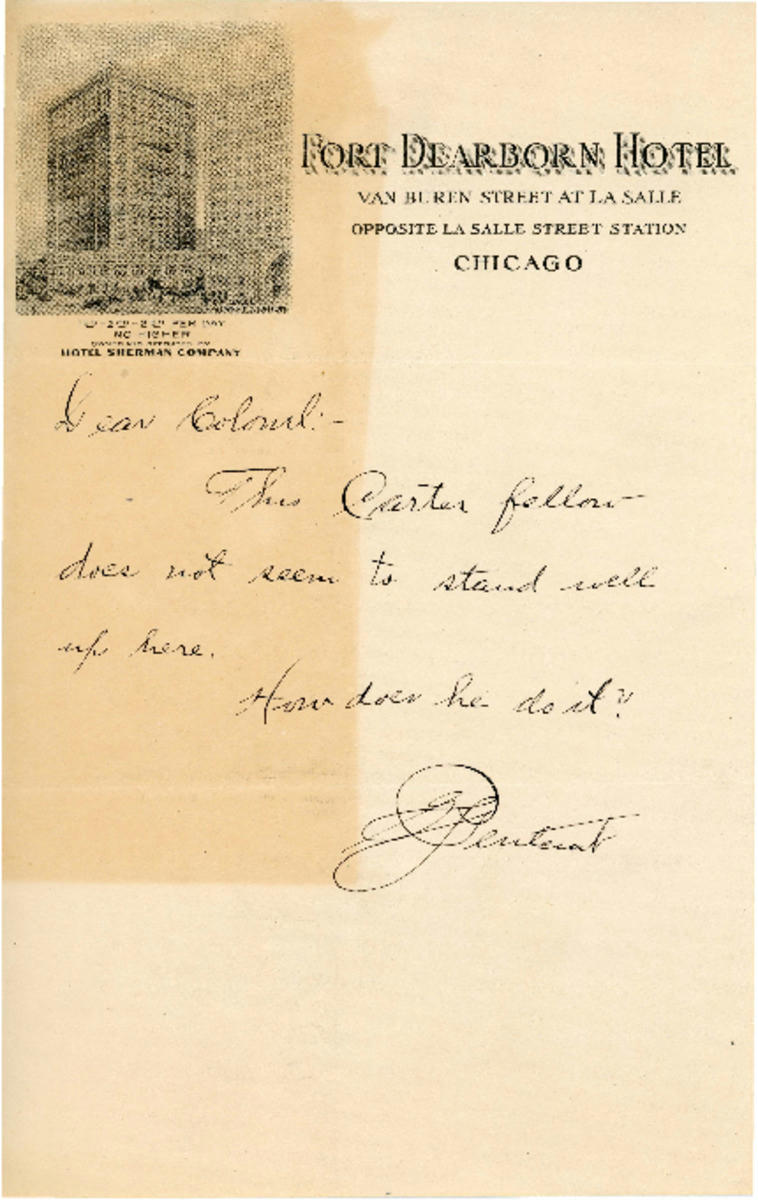 FORT DEARBORN HOTEL
VAN BUREN STREET AT LA SALLE
OPPOSITE LA SALLE STREET STATION
CHICAGO
PER DAY
NO HIGHER
OWNED AND OPERATED BY
HOTEL SHERMAN COMPANY
Dear Colonel:-
This Carter fellow
does not seem to stand well
up here.
How does he do it?